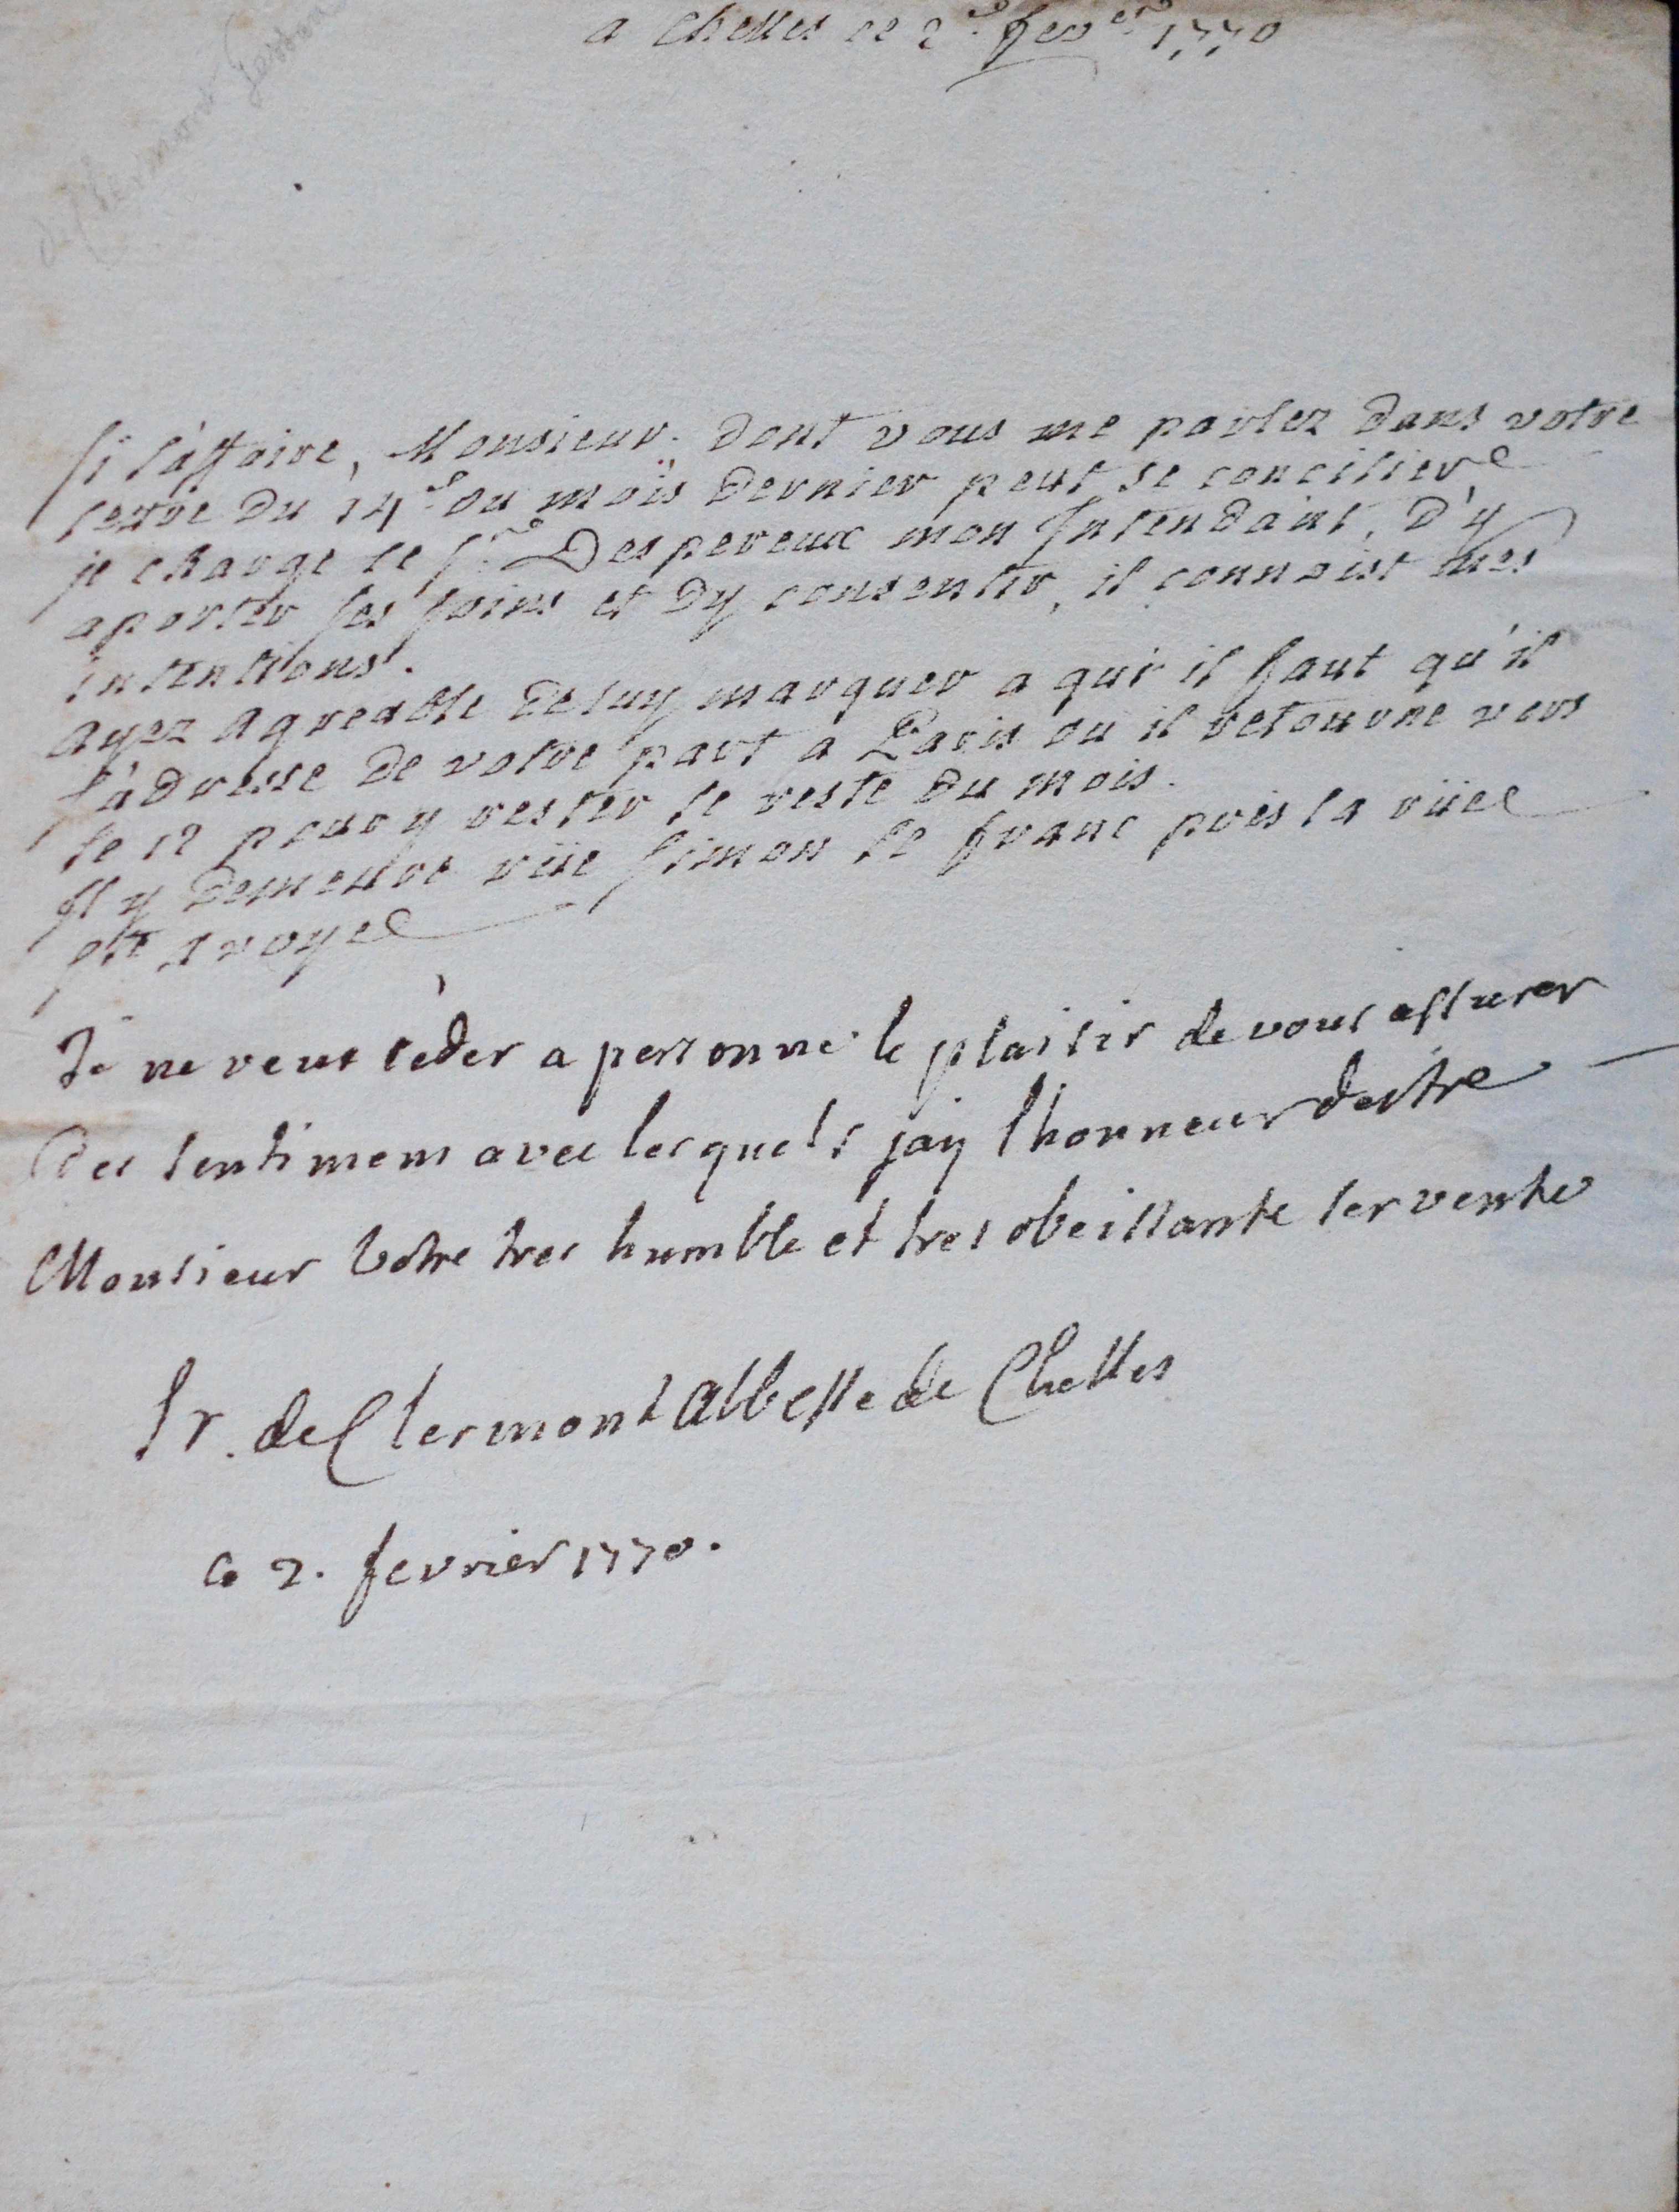 de Clermont Gessan
a Chelles ce 2e. fever. 1770
Si l'affaire, Monsieur, dont vous me parlez dans votre
lettre du 14e. du mois dernier peut se concilier
je charge le Sr. Despereux mon Intendant, d'y
aporter ses soins et d'y consentir, il connoist mes
intentions.
Ayez agreable de luy marquer a qui il faut qu'il
s'adresse de votre part a Paris ou il retourne vers
le 12 pour y rester le reste du mois.
Il y demeure rüe Simon le franc près la rüe
Ste Avoye
Je ne veux céder a personne le plaisir de vous assurer
des sentimens avec lesquels jay lhonneur destre
Monsieur Votre tres humble et tres obeissante servente
Sr. de Clermont Abbesse de Chelles
Ce 2. fevrier 1770.